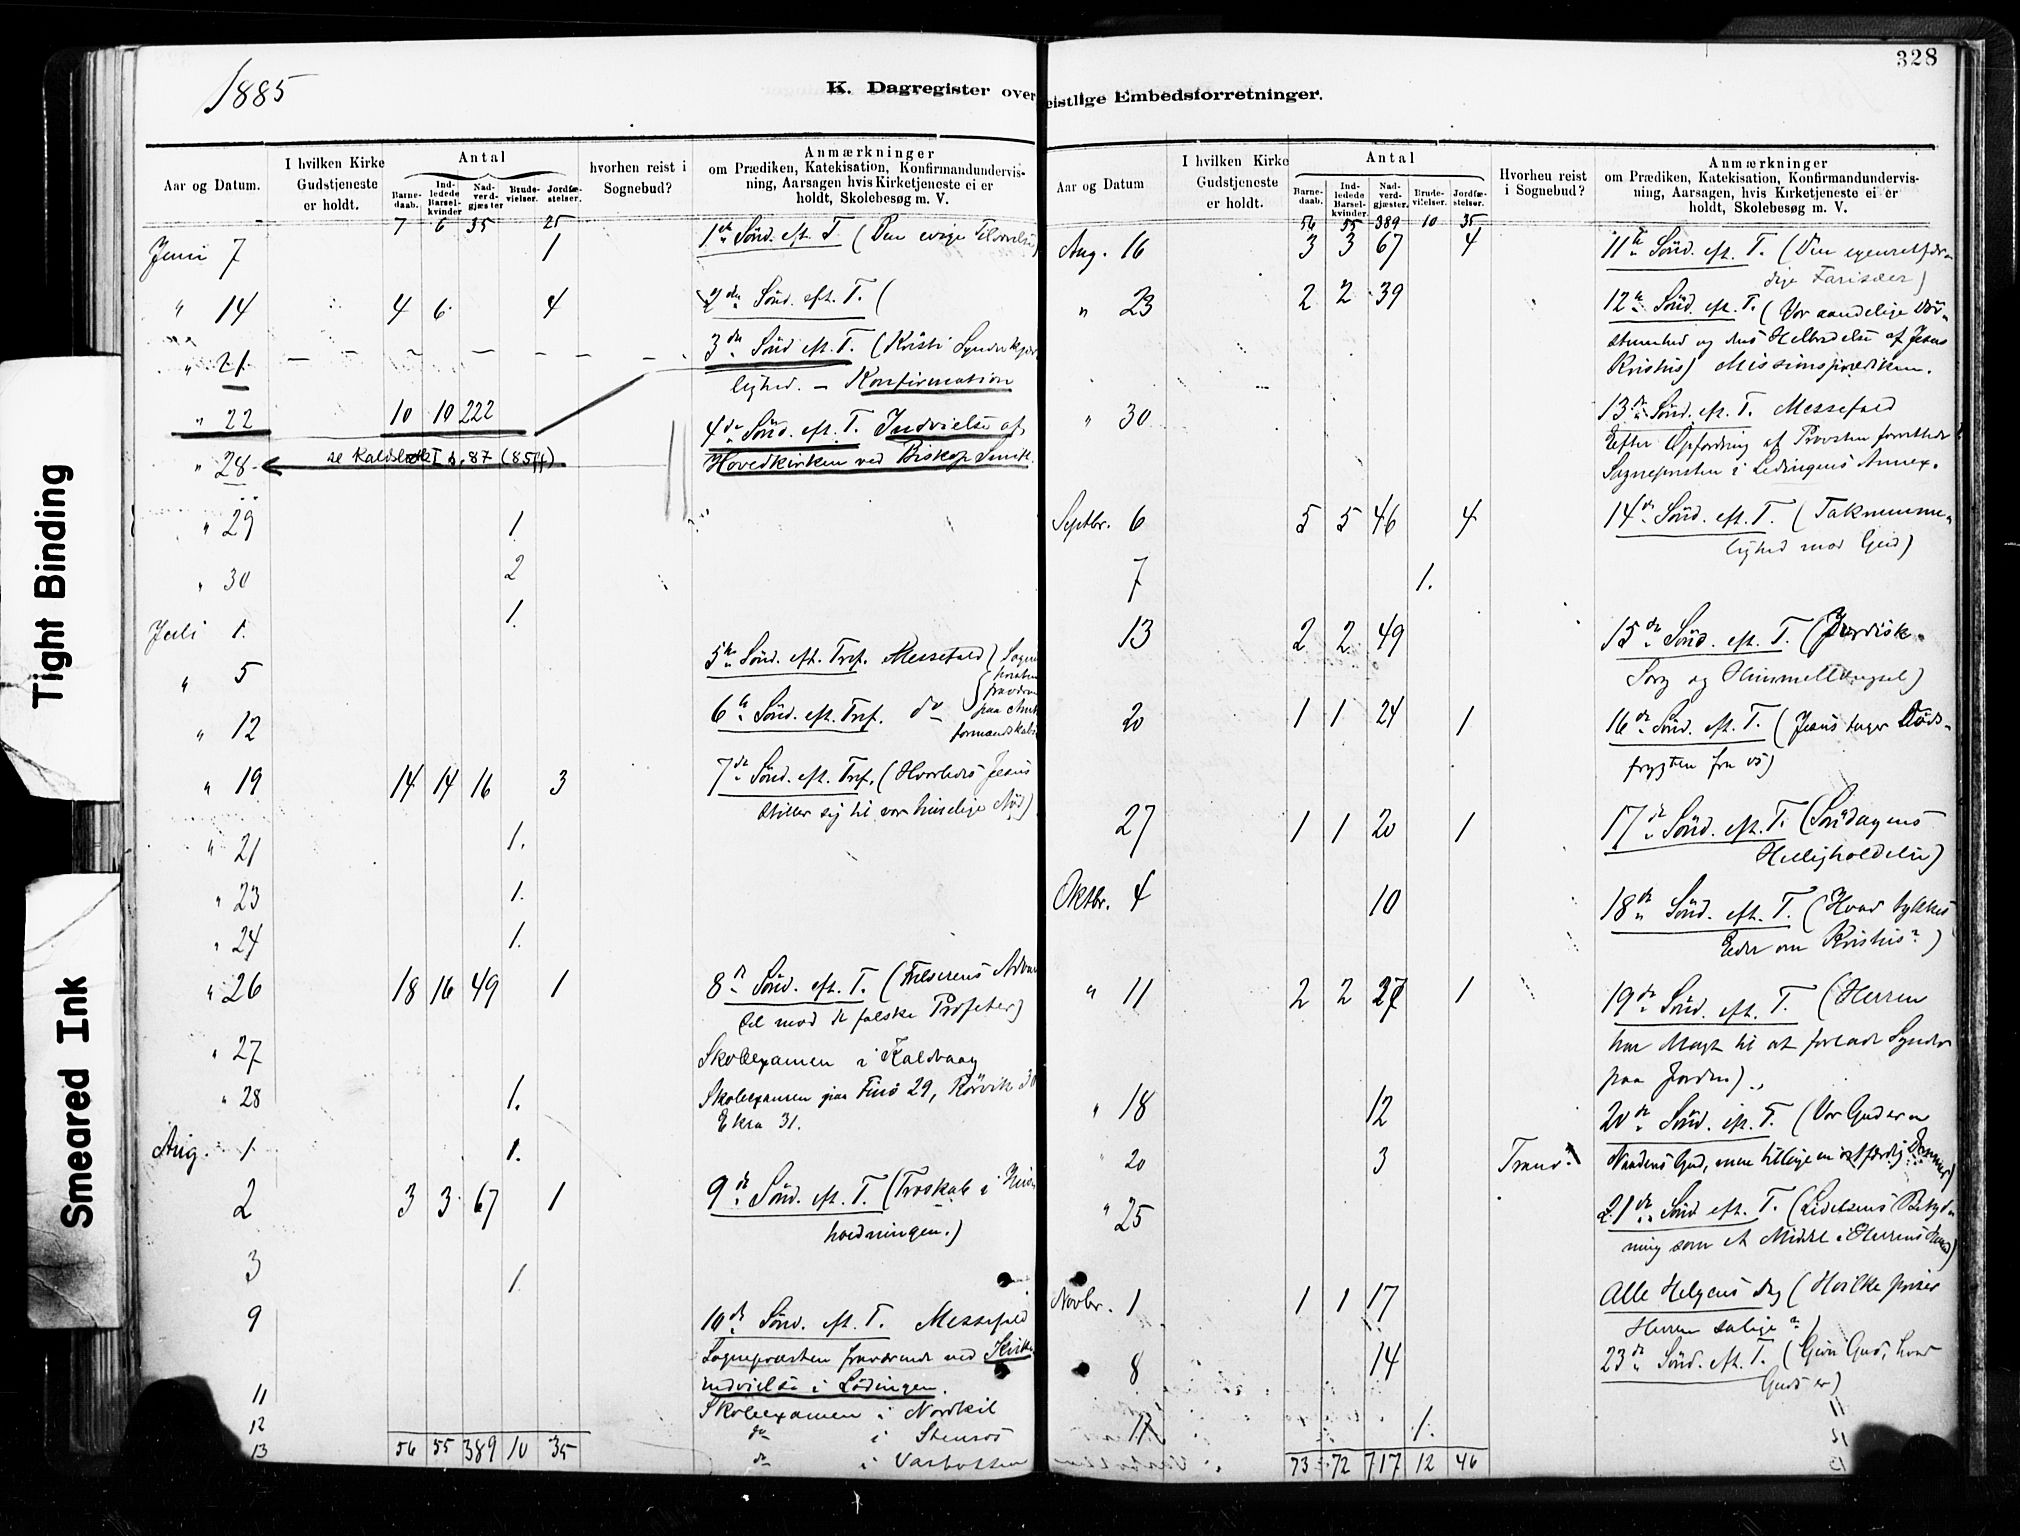 328
1885
K. Dagregister over
eistlige Embedsforretninger.
Aar og Datum.
I hvilken Kirke Gudstjeneste er holdt.
Antal
Barnedaab.
Indledede Barselkvinder
Nadverdgjæster
Brudevielser.
Jordfæstelser.
hvorhen reist i Sognebud?
Anmærkninger
om Prædiken, Katekisation, Konfirmandundervisning, Aarsagen hvis Kirketjeneste ei er holdt, Skolebesøg m. V.
7 6 35 25
Juni 7 1 1ste Sönd. eft. T. (Den evige
" 14 4 6 4 2den Sönd. eft. T. (
" 21 — — — — — — — 3die Sönd. eft. T. (Kristi
lighed. — Konfirmation
" 22 10 10 222 4de Sönd. eft. T. Indvielse af
" 28 se Kaldsbok I s. 87 (85ff) Hovedkirken ved Biskop Smitt.
" 29 1.
" 30 2
Juli 1. 1.
" 5 5te Sönd. eft. Tref. Messefald (Sogne
præsten
fraværen
" 12 6te Sönd. eft. Tref. do paa Amt
formandskabs
" 19 14 14 16 3 7de Sönd. eft. Tref. (Hvorledes Jesus
stiller sig til vor huslige Nöd)
" 21 1.
" 23 1.
" 24 1.
" 26 18 16 49 1 8de Sönd. eft. T. (Frelserens Advar
sel mod de falske Profeter)
" 27 Skoleexamen i Kaldvaag
" 28 1. Skoleexamen paa Finö 29, Rörvik 30
Ekra 31.
Aug. 1 1.
2 3 3 67 1 9de Sönd. eft. T. (Troskab i Hus
holdningen.)
3 1.
9 10de Sönd. eft. T. Messefald
Sognepræsten fraværende ved Kirke
indvielse i Lödingen.
11 Skoleexamen i Nordkil
12 do i Stensös
13 do i Varbotten
56 55 389 10 35
Aar og Datum
I hvilken Kirke Gudstjeneste er holdt.
Antal
Barnedaab.
Indledede Barselkvinder
Nadverdgjæster.
Brudevielser.
Jordfæstelser.
Hvorhen reist i Sognebud?
Anmærkninger
om Prædiken, Katekisation, Konfirmandundervisning, Aarsagen, hvis Kirketjeneste ei er holdt, Skolebesøg m. V.
56 55 389 10 35
Aug. 16 3 3 67 4 11te Sönd. eft. T. (Den egenretfær-
dige Farisæer)
" 23 2 2 39 12te Sönd. eft. T. (Vor aandelige Döv-
stumhed og dens Helbredelse af Jesus
Kristus) Missionsprædiken.
" 30 13de Sönd. eft. T. Messefald
Efter Opfordring af Provsten forrettede
Sognepresten i Lödingens Annex.
Septbr. 6 5 5 46 4 14de Sönd. eft. T. (Taknemme-
lighed mod Gud)
7 1.
13 2 2 49 15de Sönd. eft. T. (Jordisk
Sorg og Himmellængsel)
20 1 1 24 1 16de Sönd. eft. T. (Jesus tager Döds-
frygten fra os)
27 1 1 20 1 17de Sönd. eft. T. (Söndagens
Helligholdelse)
Oktbr. 4 10 18de Sönd. eft. T. (Hvad tykkes
Eder om Kristus?)
" 11 2 2 27 1 19de Sönd. eft. T. (Herren
har Magt til at forlade Synder
paa Jorden).
" 18 12 20de Sönd. eft. T. (Vor Gud er en
" 20 3 Tranö Naadens Gud, men tillige en retfærdig Dommer)
" 25 21de Sönd. eft. T. (Lidelsens Betyd-
ning som et Middel i Herrens Haand)
Novbr. 1 1 1 17 Alle Helgens Dag (Hvilke priser
Herren salige?)
8 14 23de Sönd. eft. T. (Giver Gud, hvad
Guds er)
17 1.
73 72 717 12 46
Tight Binding
Smeared Ink